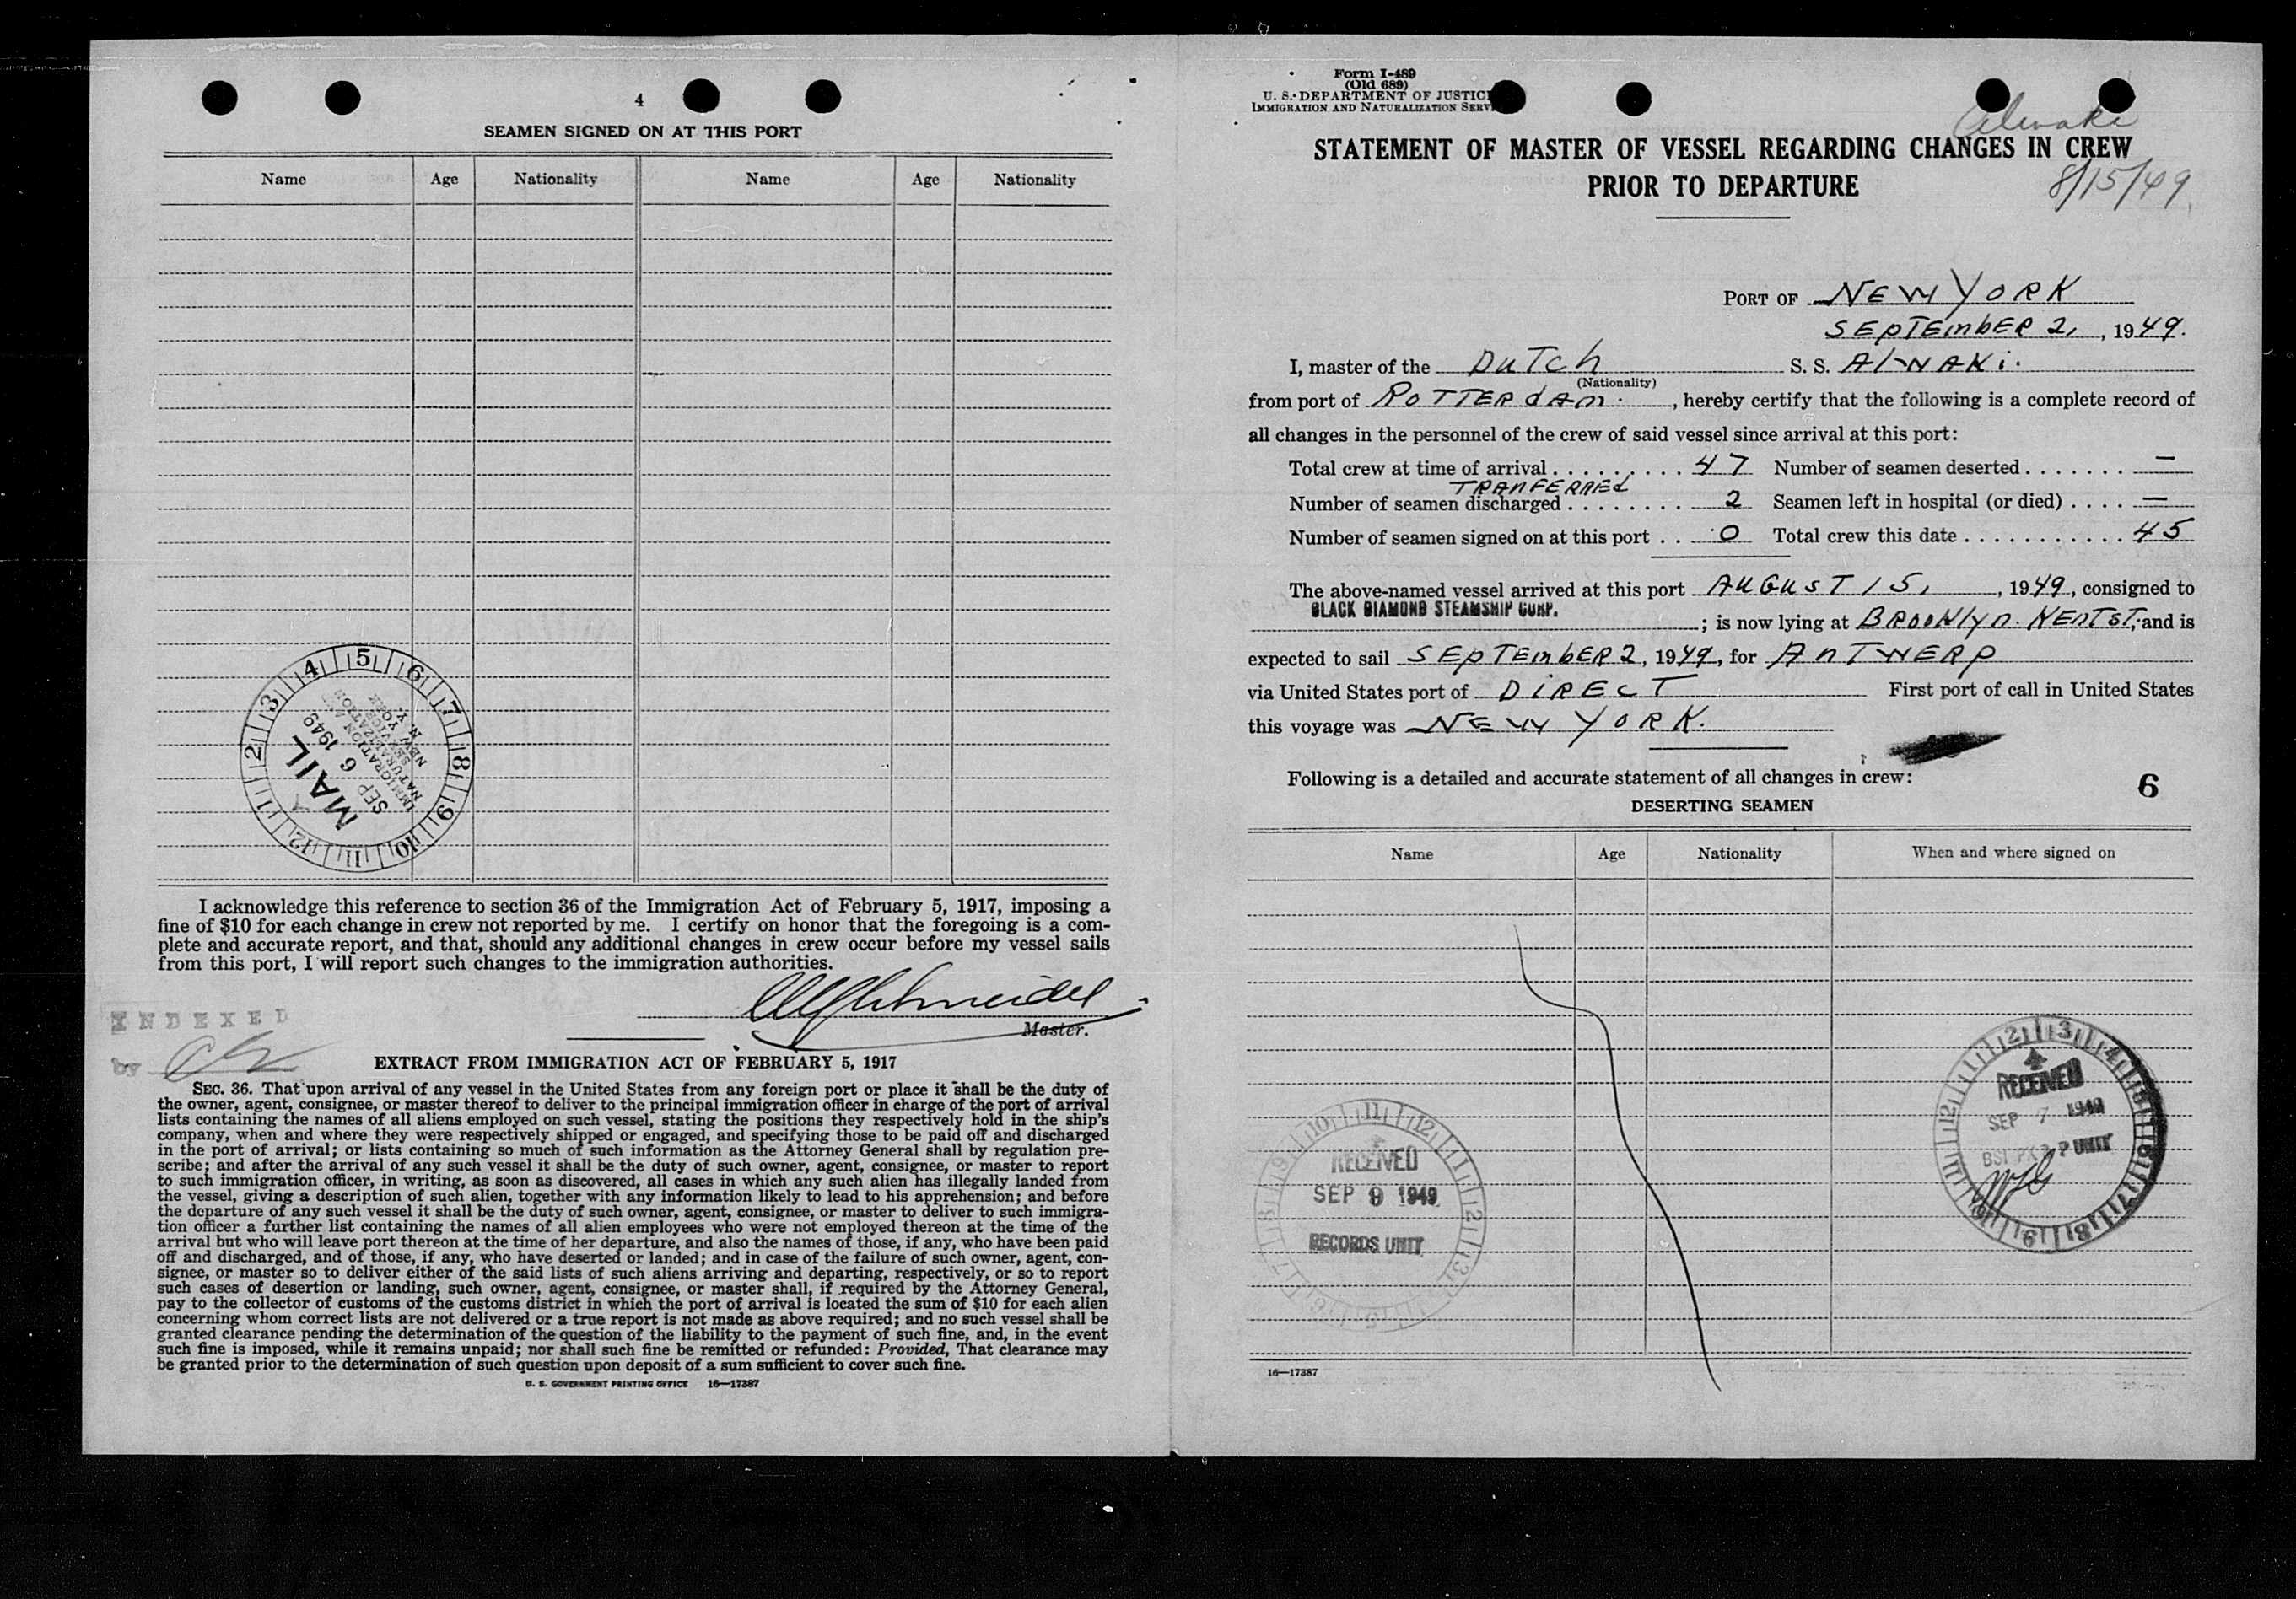 4
SEAMEN SIGNED ON AT THIS PORT
Name Age Nationality Name Age Nationality
1 2 3 4 5 6 7 8 9 10 11 12
MAIL
SEP 6 1949
IMMIGRATION &
NATURALIZATION
SERVICE
NEW YORK
N. Y.
I acknowledge this reference to section 36 of the Immigration Act of February 5, 1917, imposing a
fine of $10 for each change in crew not reported by me. I certify on honor that the foregoing is a com-
plete and accurate report, and that, should any additional changes in crew occur before my vessel sails
from this port, I will report such changes to the immigration authorities.
Schneidel
Master.
INDEXED
by
EXTRACT FROM IMMIGRATION ACT OF FEBRUARY 5, 1917
SEC. 36. That upon arrival of any vessel in the United States from any foreign port or place it shall be the duty of
the owner, agent, consignee, or master thereof to deliver to the principal immigration officer in charge of the port of arrival
lists containing the names of all aliens employed on such vessel, stating the positions they respectively hold in the ship's
company, when and where they were respectively shipped or engaged, and specifying those to be paid off and discharged
in the port of arrival; or lists containing so much of such information as the Attorney General shall by regulation pre-
scribe; and after the arrival of any such vessel it shall be the duty of such owner, agent, consignee, or master to report
to such immigration officer, in writing, as soon as discovered, all cases in which any such alien has illegally landed from
the vessel, giving a description of such alien, together with any information likely to lead to his apprehension; and before
the departure of any such vessel it shall be the duty of such owner, agent, consignee, or master to deliver to such immigra-
tion officer a further list containing the names of all alien employees who were not employed thereon at the time of the
arrival but who will leave port thereon at the time of her departure, and also the names of those, if any, who have been paid
off and discharged, and of those, if any, who have deserted or landed; and in case of the failure of such owner, agent, con-
signee, or master so to deliver either of the said lists of such aliens arriving and departing, respectively, or so to report
such cases of desertion or landing, such owner, agent, consignee, or master shall, if required by the Attorney General,
pay to the collector of customs of the customs district in which the port of arrival is located the sum of $10 for each alien
concerning whom correct lists are not delivered or a true report is not made as above required; and no such vessel shall be
granted clearance pending the determination of the question of the liability to the payment of such fine, and, in the event
such fine is imposed, while it remains unpaid; nor shall such fine be remitted or refunded: Provided, That clearance may
be granted prior to the determination of such question upon deposit of a sum sufficient to cover such fine.
U. S. GOVERNMENT PRINTING OFFICE 16—17387
Form I-489
(Old 689)
U. S. DEPARTMENT OF JUSTICE
IMMIGRATION AND NATURALIZATION SERV
Alwaki
STATEMENT OF MASTER OF VESSEL REGARDING CHANGES IN CREW
PRIOR TO DEPARTURE
8/15/49
PORT OF NEW YORK
SEPTEMBER 2, , 1949.
I, master of the DUTCH S. S. ALWAKi.
(Nationality)
from port of ROTTERdAM. , hereby certify that the following is a complete record of
all changes in the personnel of the crew of said vessel since arrival at this port:
Total crew at time of arrival . . . . . . . . . 47 Number of seamen deserted . . . . . . . —
TRANFERREd
Number of seamen discharged . . . . . . . . 2 Seamen left in hospital (or died) . . . . —
Number of seamen signed on at this port . . 0 Total crew this date . . . . . . . . . . . 45
The above-named vessel arrived at this port AUGUST 15, , 1949, consigned to
BLACK DIAMOND STEAMSHIP CORP. ; is now lying at BROOKlyn KENT ST, and is
expected to sail SEPTEMBER 2, 1949, for ANTWERP
via United States port of DiRECT First port of call in United States
this voyage was NEW YORK.
Following is a detailed and accurate statement of all changes in crew:
6
DESERTING SEAMEN
Name Age Nationality When and where signed on
RECEIVED
SEP 7 1949
UNIT
RECEIVED
SEP 9 1949
RECORDS UNIT
16—17387